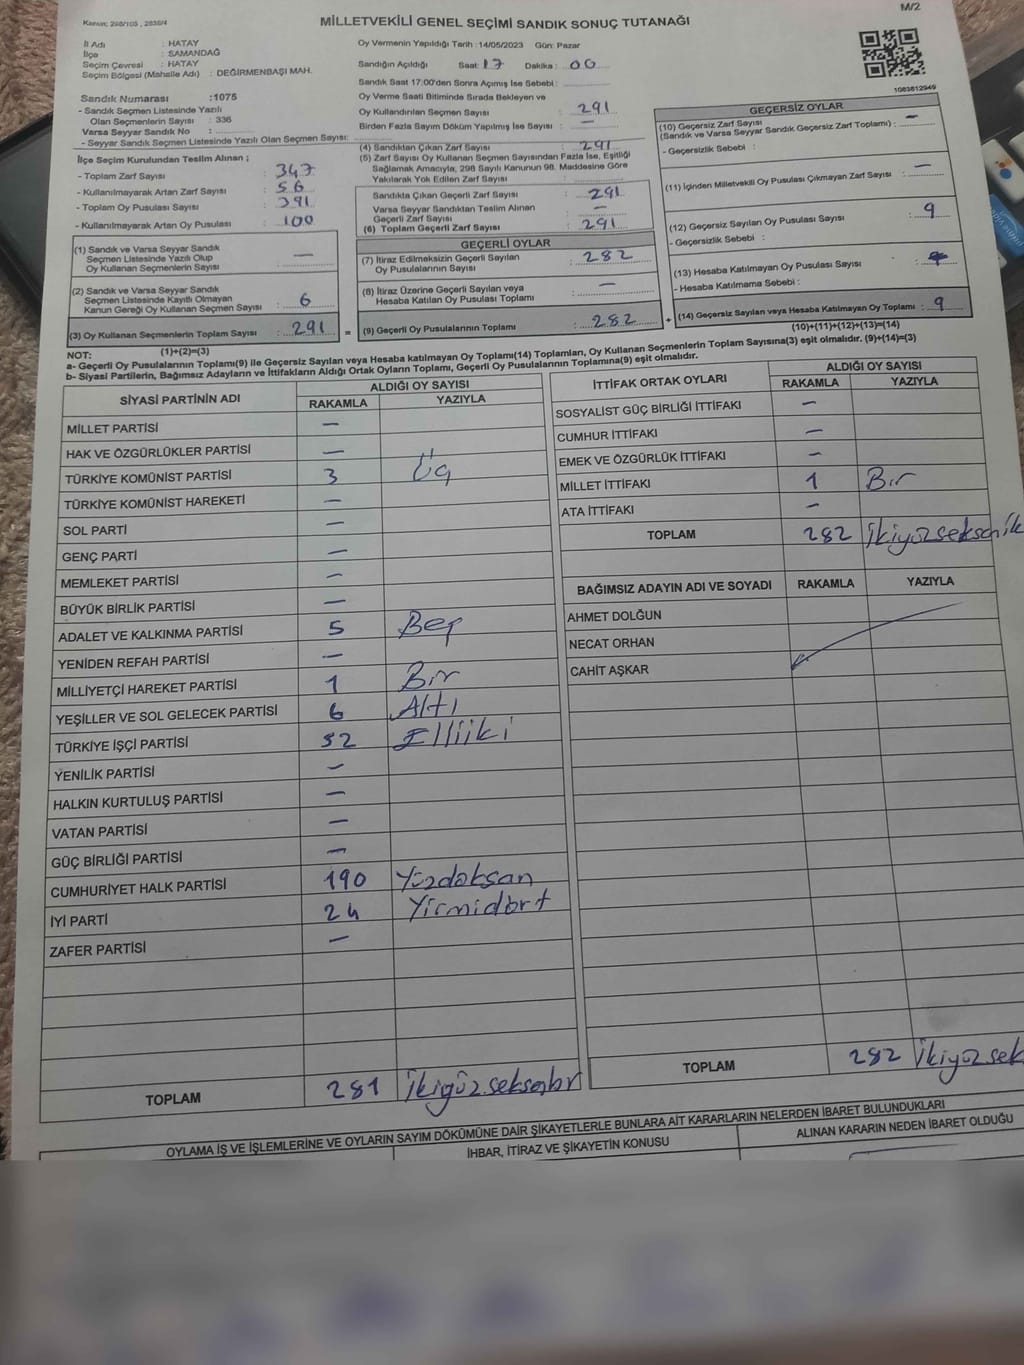 M/2
Kanun: 298/105 , 2839/4
MİLLETVEKİLİ GENEL SEÇİMİ SANDIK SONUÇ TUTANAĞI
İl Adı : HATAY
İlçe : SAMANDAĞ
Seçim Çevresi : HATAY
Seçim Bölgesi (Mahalle Adı) : DEĞİRMENBAŞI MAH.
Sandık Numarası :1075
- Sandık Seçmen Listesinde Yazılı
Olan Seçmenlerin Sayısı : 336
Varsa Seyyar Sandık No :
- Seyyar Sandık Seçmen Listesinde Yazılı Olan Seçmen Sayısı:
Oy Vermenin Yapıldığı Tarih :14/05/2023 Gün: Pazar
Sandığın Açıldığı Saat: 17 Dakika : 00
Sandık Saat 17:00'den Sonra Açımış İse Sebebi :
Oy Verme Saati Bitiminde Sırada Bekleyen ve
Oy Kullandırılan Seçmen Sayısı : 291
Birden Fazla Sayım Döküm Yapılmış İse Sayısı : —
1083812949
İlçe Seçim Kurulundan Teslim Alınan ;
- Toplam Zarf Sayısı : 347
- Kullanılmayarak Artan Zarf Sayısı : 56
- Toplam Oy Pusulası Sayısı : 391
- Kullanılmayarak Artan Oy Pusulası : 100
(1) Sandık ve Varsa Seyyar Sandık
Seçmen Listesinde Yazılı Olup
Oy Kullanan Seçmenlerin Sayısı : —
(2) Sandık ve Varsa Seyyar Sandık
Seçmen Listesinde Kayıtlı Olmayan
Kanun Gereği Oy Kullanan Seçmenlerin Sayısı : 6
(3) Oy Kullanan Seçmenlerin Toplam Sayısı : 291 =
(1)+(2)=(3)
(4) Sandıktan Çıkan Zarf Sayısı : 291
(5) Zarf Sayısı Oy Kullanan Seçmen Sayısından Fazla İse, Eşitliği
Sağlamak Amacıyla, 298 Sayılı Kanunun 98. Maddesine Göre
Yakılarak Yok Edilen Zarf Sayısı :
Sandıkta Çıkan Geçerli Zarf Sayısı : 291
Varsa Seyyar Sandıktan Teslim Alınan
Geçerli Zarf Sayısı : —
(6) Toplam Geçerli Zarf Sayısı : 291
GEÇERLİ OYLAR
(7) İtiraz Edilmeksizin Geçerli Sayılan
Oy Pusulalarının Sayısı : 282
(8) İtiraz Üzerine Geçerli Sayılan veya
Hesaba Katılan Oy Pusulası Toplamı : —
(9) Geçerli Oy Pusulalarının Toplamı : 282 +
GEÇERSİZ OYLAR
(10) Geçersiz Zarf Sayısı : —
(Sandık ve Varsa Seyyar Sandık Geçersiz Zarf Toplamı) :
- Geçersizlik Sebebi :
(11) İçinden Milletvekili Oy Pusulası Çıkmayan Zarf Sayısı : —
(12) Geçersiz Sayılan Oy Pusulası Sayısı : 9
- Geçersizlik Sebebi :
(13) Hesaba Katılmayan Oy Pusulası Sayısı :
- Hesaba Katılmama Sebebi :
(14) Geçersiz Sayılan veya Hesaba Katılmayan Oy Toplamı : 9
(10)+(11)+(12)+(13)=(14)
NOT:
a- Geçerli Oy Pusulalarının Toplamı(9) ile Geçersiz Sayılan veya Hesaba katılmayan Oy Toplamı(14) Toplamları, Oy Kullanan Seçmenlerin Toplam Sayısına(3) eşit olmalıdır. (9)+(14)=(3)
b- Siyasi Partilerin, Bağımsız Adayların ve İttifakların Aldığı Ortak Oyların Toplamı, Geçerli Oy Pusulalarının Toplamına(9) eşit olmalıdır.
SİYASİ PARTİNİN ADI ALDIĞI OY SAYISI
RAKAMLA YAZIYLA
MİLLET PARTİSİ —
HAK VE ÖZGÜRLÜKLER PARTİSİ —
TÜRKİYE KOMÜNİST PARTİSİ 3 Üç
TÜRKİYE KOMÜNİST HAREKETİ —
SOL PARTİ —
GENÇ PARTİ —
MEMLEKET PARTİSİ —
BÜYÜK BİRLİK PARTİSİ —
ADALET VE KALKINMA PARTİSİ 5 Beş
YENİDEN REFAH PARTİSİ —
MİLLİYETÇİ HAREKET PARTİSİ 1 Bir
YEŞİLLER VE SOL GELECEK PARTİSİ 6 Altı
TÜRKİYE İŞÇİ PARTİSİ 52 Elliiki
YENİLİK PARTİSİ —
HALKIN KURTULUŞ PARTİSİ —
VATAN PARTİSİ —
GÜÇ BİRLİĞİ PARTİSİ —
CUMHURİYET HALK PARTİSİ 190 Yüzdoksan
İYİ PARTİ 24 Yirmidört
ZAFER PARTİSİ —
TOPLAM 281 İkiyüzseksenbir
İTTİFAK ORTAK OYLARI ALDIĞI OY SAYISI
RAKAMLA YAZIYLA
SOSYALİST GÜÇ BİRLİĞİ İTTİFAKI —
CUMHUR İTTİFAKI —
EMEK VE ÖZGÜRLÜK İTTİFAKI —
MİLLET İTTİFAKI 1 Bir
ATA İTTİFAKI —
TOPLAM 282 İkiyüzseksenik
BAĞIMSIZ ADAYIN ADI VE SOYADI RAKAMLA YAZIYLA
AHMET DOLĞUN
NECAT ORHAN
CAHİT AŞKAR
TOPLAM 282 İkiyüzsek
OYLAMA İŞ VE İŞLEMLERİNE VE OYLARIN SAYIM DÖKÜMÜNE DAİR ŞİKAYETLERLE BUNLARA AİT KARARLARIN NELERDEN İBARET BULUNDUKLARI
İHBAR, İTİRAZ VE ŞİKAYETİN KONUSU
ALINAN KARARIN NEDEN İBARET OLDUĞU